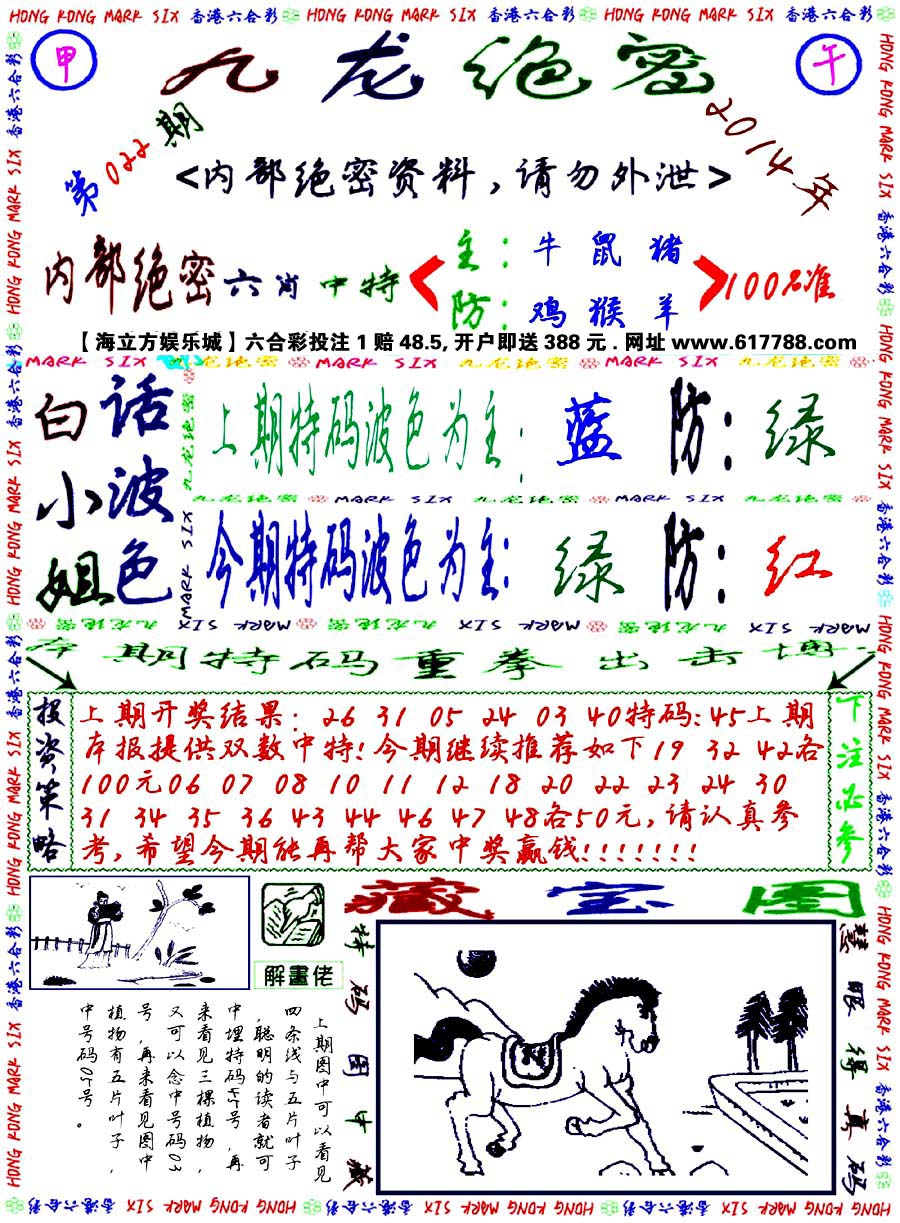 HONG KONG MARK SIX 香港六合彩 HONG KONG MARK SIX 香港六合彩 HONG KONG MARK SIX 香港六合彩
甲
九龙绝密
午
第022期
2014年
<内部绝密资料,请勿外泄>
内部绝密六肖中特
主:牛鼠猪
防:鸡猴羊
100%准
【海立方娱乐城】六合彩投注1赔48.5,开户即送388元.网址www.617788.com
MARK SIX 九龙绝密 MARK SIX 九龙绝密 MARK SIX 九龙绝密
白小姐
话波色
上期特码波色为主:蓝 防:绿
九龙绝密 MARK SIX 九龙绝密 MARK SIX 九龙绝密
今期特码波色为主:绿 防:红
本期特码重拳出击博
投资策略
上期开奖结果:26 31 05 24 03 40特码:45上期
本报提供双数中特!今期继续推荐如下19 32 42各
100元06 07 08 10 11 12 18 20 22 23 24 30
31 34 35 36 43 44 46 47 48各50元,请认真参
考,希望今期能再帮大家中奖赢钱!!!!!!!
下注必参
解畫佬
藏宝图
特码图中藏
慧眼得真码
上期图中可以看见
四条线与五片叶子
,聪明的读者就可
中埋特码45号,再
来看见三棵植物,
又可以念中号码03
号,再来看见图中
植物有五片叶子,
中号码05号。
HONG KONG MARK SIX 香港六合彩